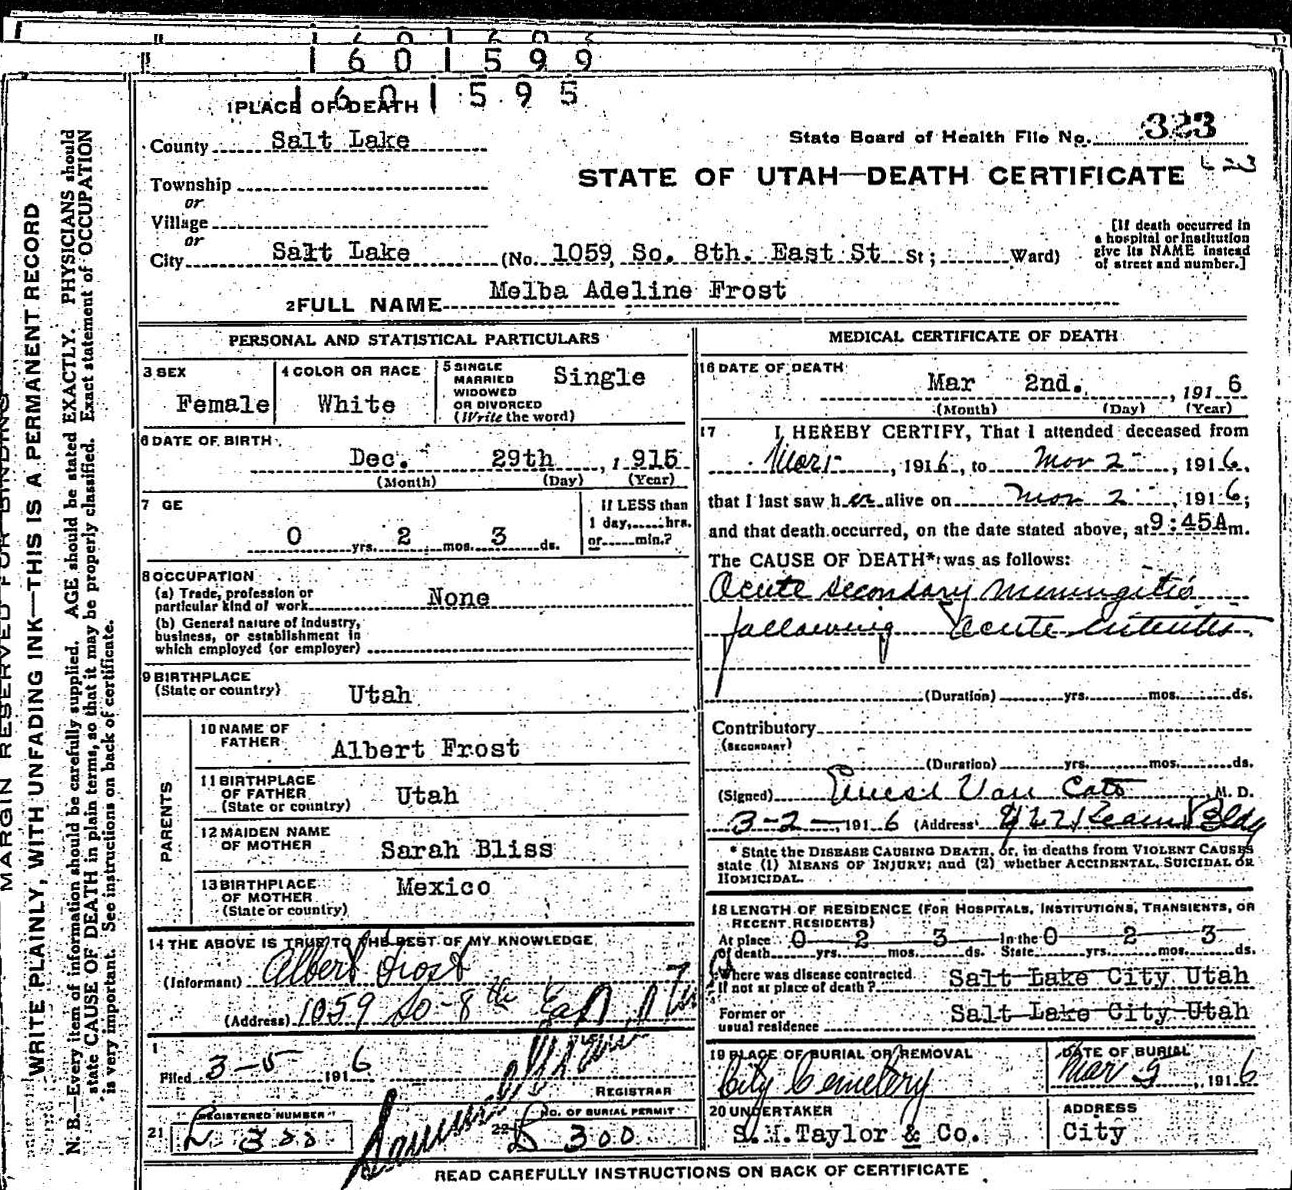 1601599
1601595
1 PLACE OF DEATH
County Salt Lake
State Board of Health File No. 323
Township
STATE OF UTAH—DEATH CERTIFICATE
or
Village
or
City Salt Lake (No. 1059 So. 8th. East St St; Ward)
[If death occurred in
a hospital or institution
give its NAME instead
of street and number.]
2 FULL NAME Melba Adeline Frost
PERSONAL AND STATISTICAL PARTICULARS
3 SEX
Female
4 COLOR OR RACE
White
5 SINGLE
MARRIED
WIDOWED
OR DIVORCED
(Write the word)
Single
6 DATE OF BIRTH
Dec. 29th, 1915
(Month) (Day) (Year)
7 GE
0 yrs. 2 mos. 3 ds.
If LESS than
1 day, hrs.
or min.?
8 OCCUPATION
(a) Trade, profession or
particular kind of work None
(b) General nature of industry,
business, or establishment in
which employed (or employer)
9 BIRTHPLACE
(State or country) Utah
PARENTS
10 NAME OF
FATHER Albert Frost
11 BIRTHPLACE
OF FATHER
(State or country) Utah
12 MAIDEN NAME
OF MOTHER Sarah Bliss
13 BIRTHPLACE
OF MOTHER
(State or country) Mexico
14 THE ABOVE IS TRUE TO THE BEST OF MY KNOWLEDGE
(Informant) Albert Frost
(Address) 1059 So-8th East
Filed 3-5 1916
REGISTRAR
REGISTERED NUMBER
21 300
NO. OF BURIAL PERMIT
22 300
MEDICAL CERTIFICATE OF DEATH
16 DATE OF DEATH
Mar 2nd. , 1916
(Month) (Day) (Year)
17 I HEREBY CERTIFY, That I attended deceased from
Mar 1, 1916, to Mar 2, 1916,
that I last saw her alive on Mar 2, 1916;
and that death occurred, on the date stated above, at 9:45A m.
The CAUSE OF DEATH* was as follows:
Acute secondary meningitis
following acute enteritis
(Duration) yrs. mos. ds.
Contributory
(SECONDARY)
(Duration) yrs. mos. ds.
(Signed) Ernest Van Cott M. D.
3-2-, 1916 (Address) Kearns Bldg
* State the DISEASE CAUSING DEATH, or, in deaths from VIOLENT CAUSES
state (1) MEANS OF INJURY; and (2) whether ACCIDENTAL, SUICIDAL OR
HOMICIDAL.
18 LENGTH OF RESIDENCE (FOR HOSPITALS, INSTITUTIONS, TRANSIENTS, OR
RECENT RESIDENTS)
At place 0 2 3 In the 0 2 3
of death yrs. mos. ds. State yrs. mos. ds.
Where was disease contracted
If not at place of death? Salt Lake City Utah
Former or
usual residence Salt Lake City Utah
19 PLACE OF BURIAL OR REMOVAL
City Cemetery
DATE OF BURIAL
Mar 5, 1916
20 UNDERTAKER
S.M.Taylor & Co.
ADDRESS
City
READ CAREFULLY INSTRUCTIONS ON BACK OF CERTIFICATE
MARGIN RESERVED FOR BINDING
WRITE PLAINLY, WITH UNFADING INK—THIS IS A PERMANENT RECORD
N. B.—Every item of information should be carefully supplied. AGE should be stated EXACTLY. PHYSICIANS should
state CAUSE OF DEATH in plain terms, so that it may be properly classified. Exact statement of OCCUPATION
is very important. See instructions on back of certificate.